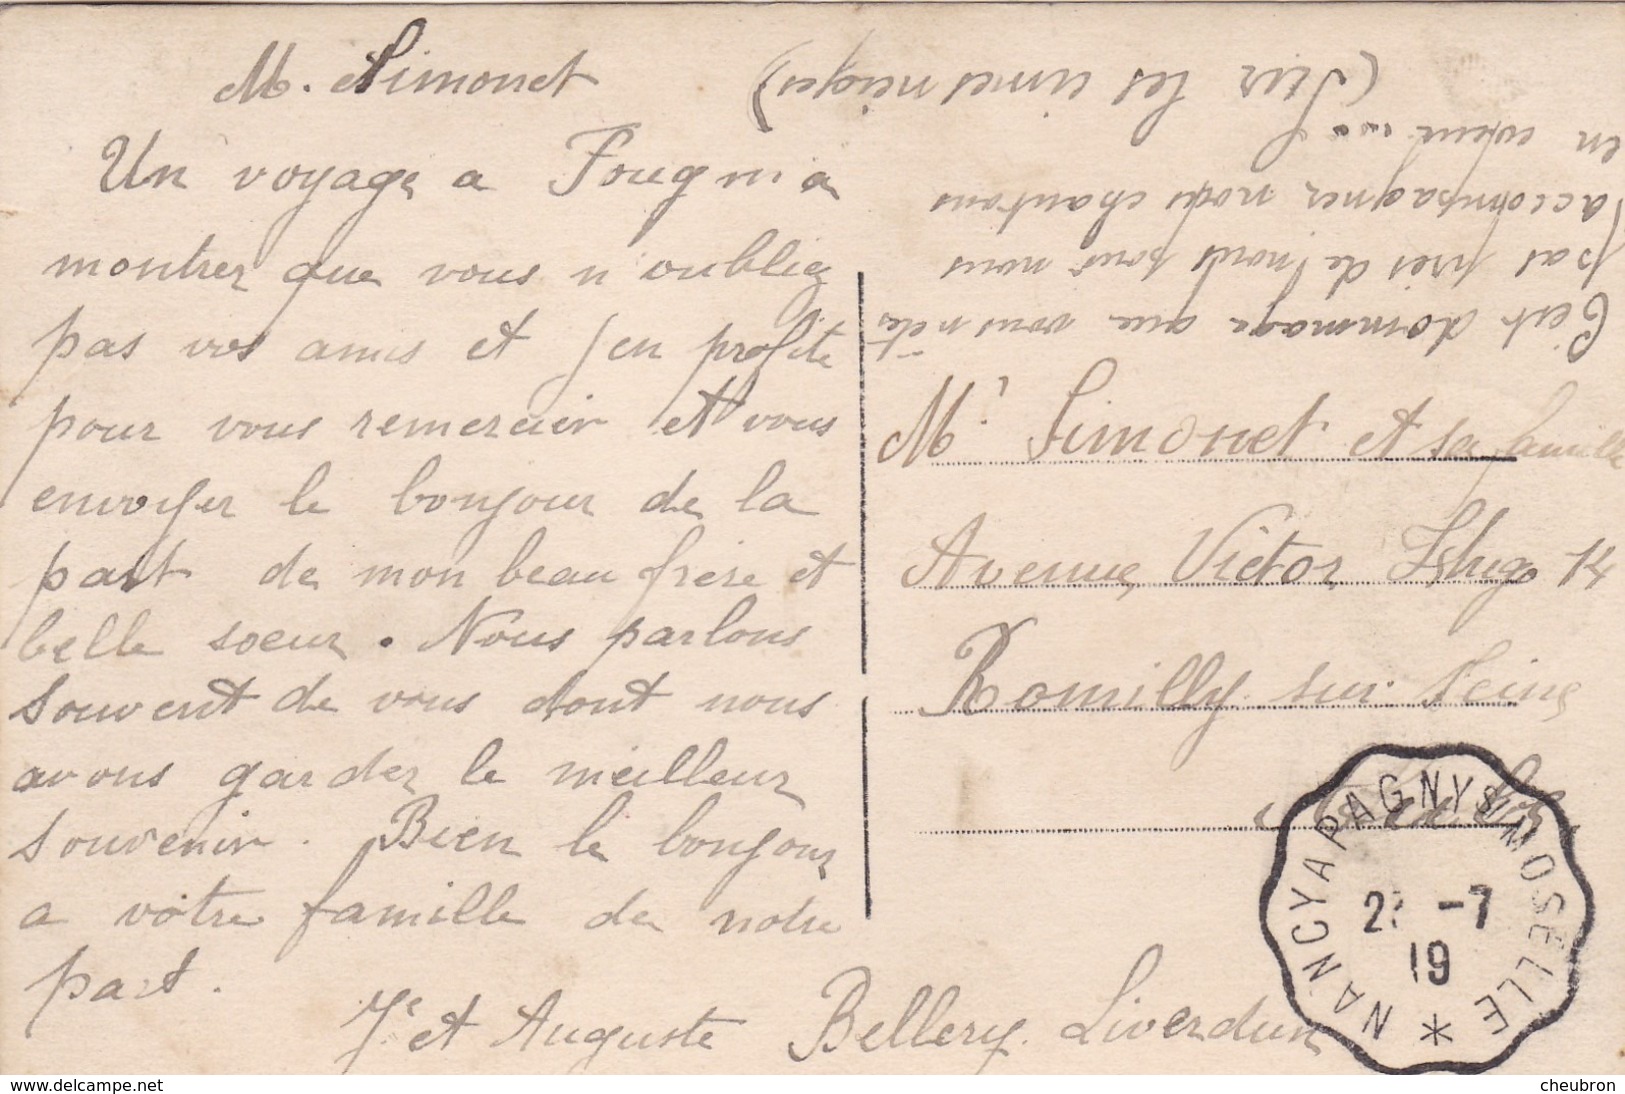 M. Simonet
Un voyage a Fougni a
montrer que vous n'oubliez
pas vos amis et j'en profite
pour vous remercier et vous
envoyer le bonjour de la
part de mon beau frère et
belle soeur. Nous parlons
souvent de vous dont nous
avons garder le meilleur
souvenir. Bien le bonjour
a vôtre famille de notre
part.
Je et Auguste Bellery Liverdun
C'est dommage que vous n'êtes
pas près de nous pour nous
accompagner nous chantons
en coeur ...
(Sur les cimes neiges)
Mr. Simonet et sa famille
Avenue Victor Hugo 14
Romilly sur Seine
NANCY A PAGNY S/MOSELLE *
-7
19
www.delcampe.net
cheubron